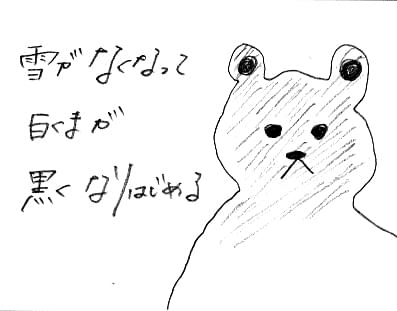 雪がなくなって
白くまが
黒くなりはじめる